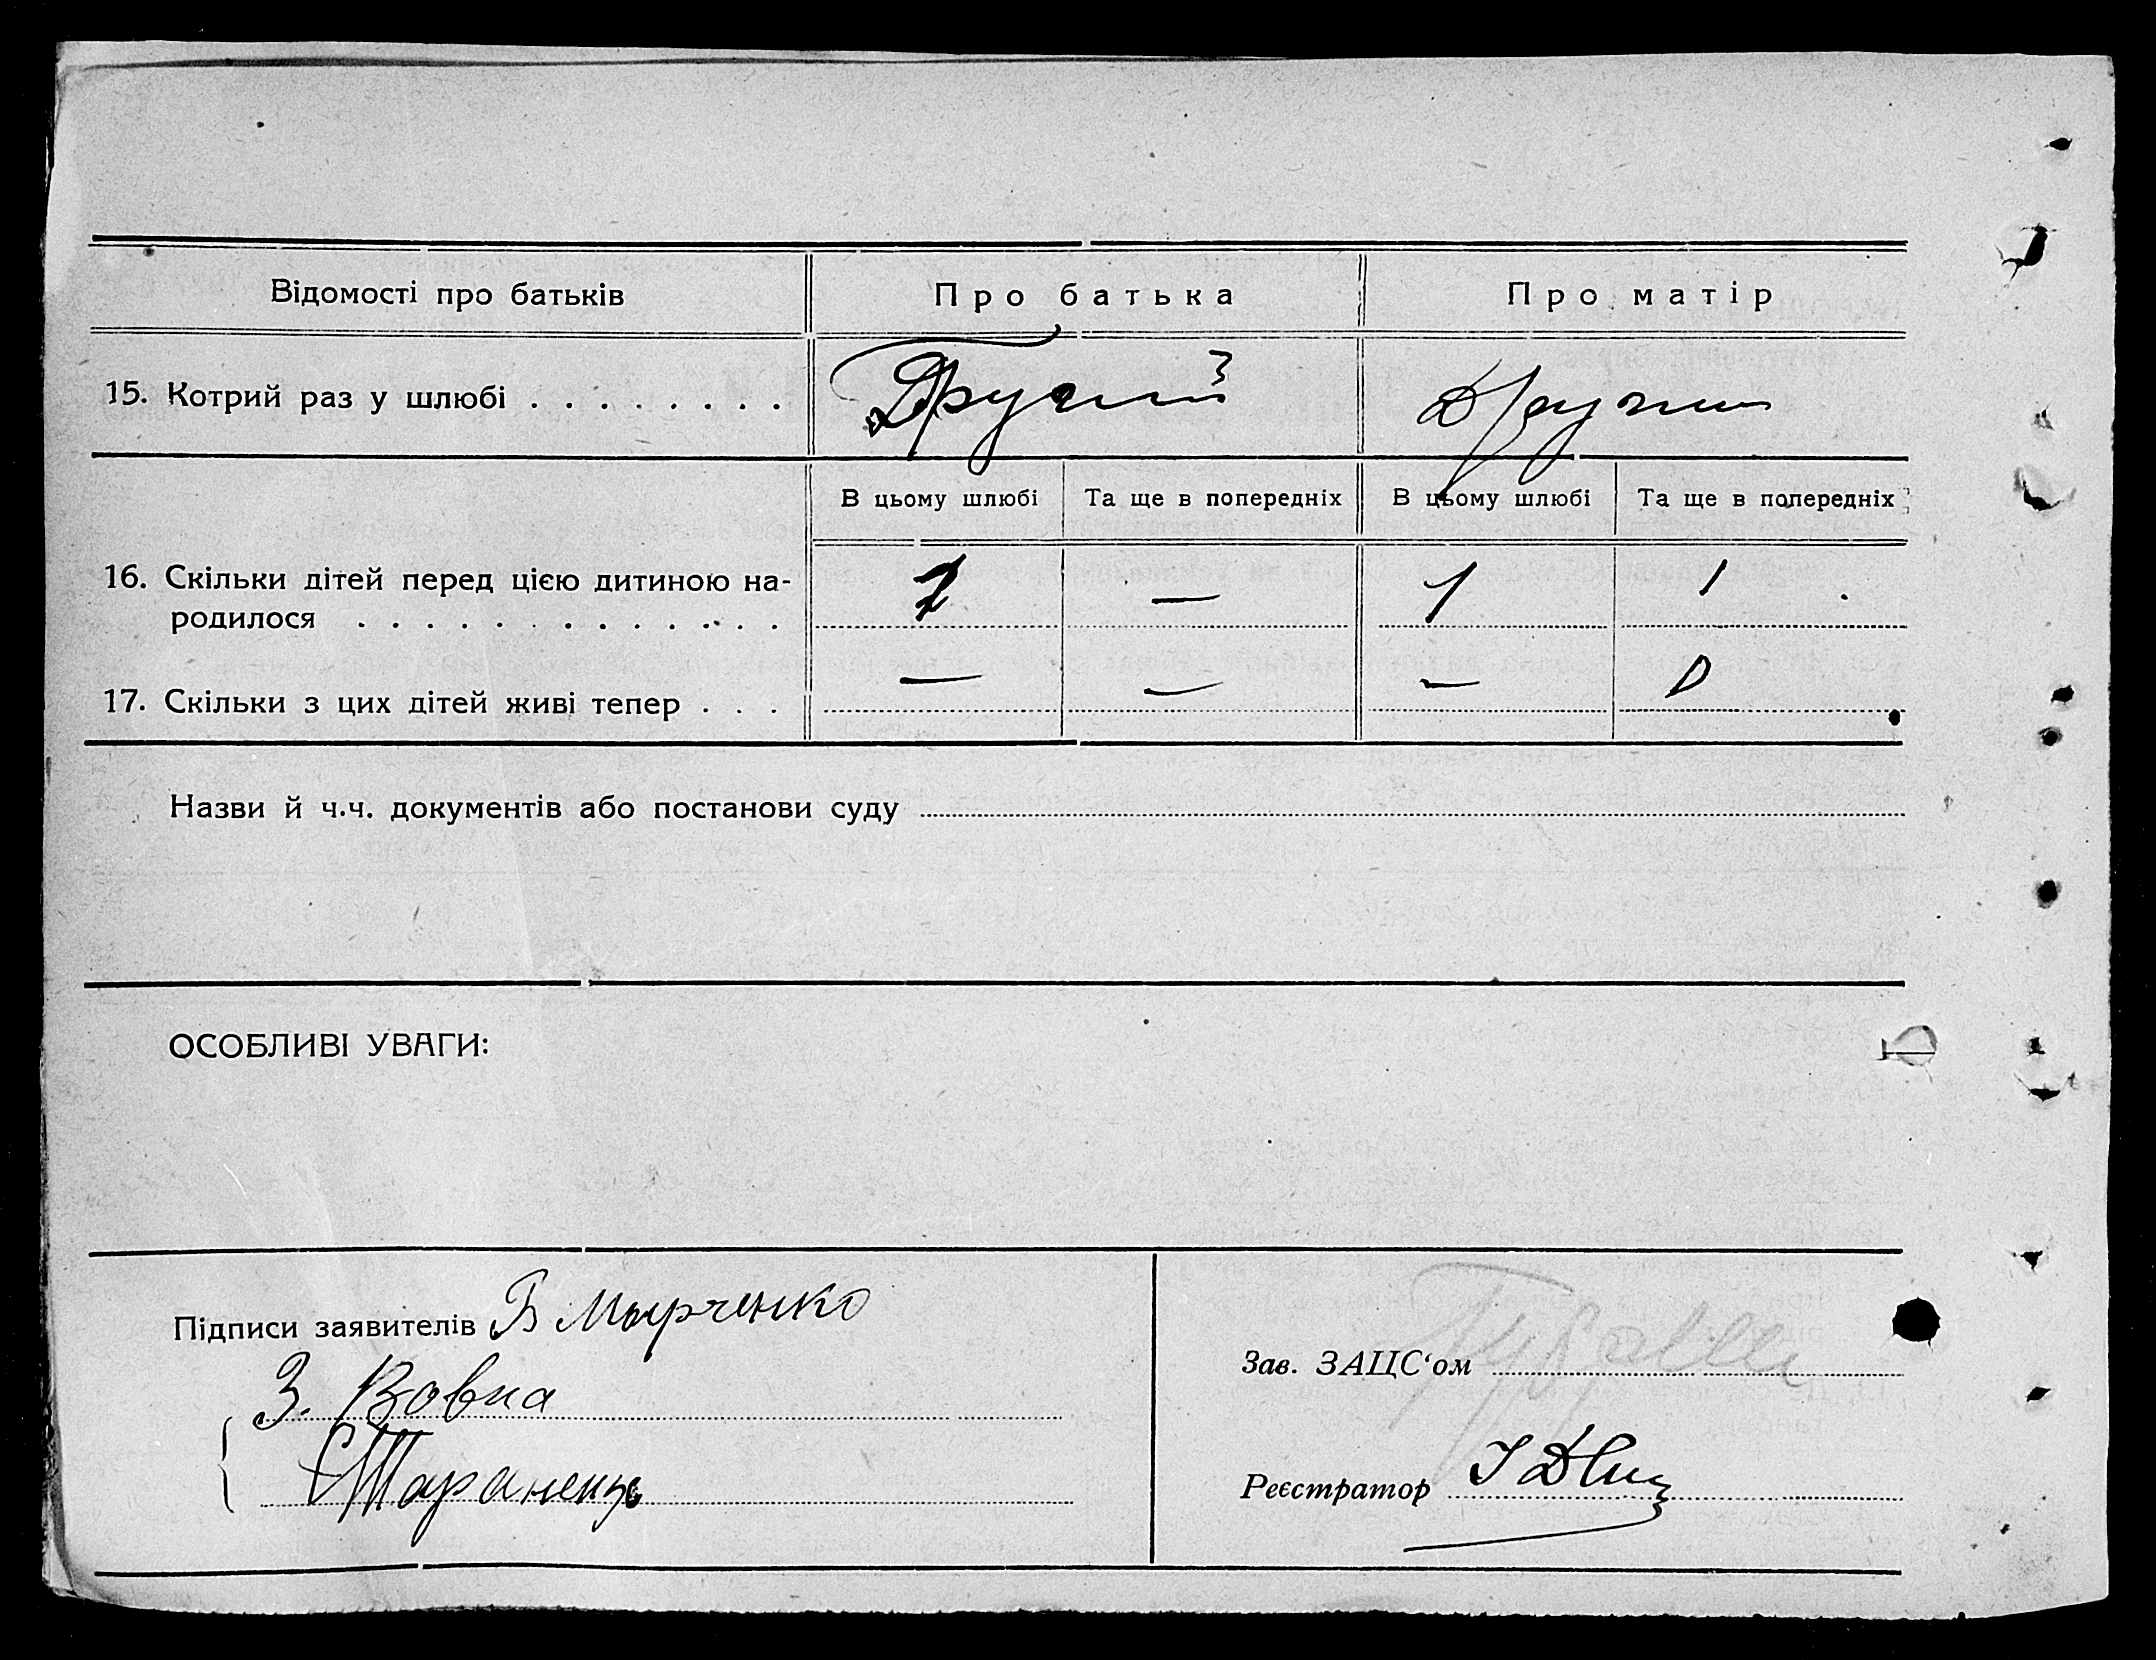 Відомості про батьків Про батька Про матір
15. Котрий раз у шлюбі . . . . . . . . Другий Другий
В цьому шлюбі Та ще в попередніх В цьому шлюбі Та ще в попередніх
16. Скільки дітей перед цією дитиною на-
родилося . . . . . . . . . . . . . — 1 1
17. Скільки з цих дітей живі тепер . . . — — — 0
Назви й ч.ч. документів або постанови суду
ОСОБЛИВІ УВАГИ:
Підписи заявителів В Марченко
З. Вовна
Зав. ЗАЦС‘ом
Тараненко
Реєстратор